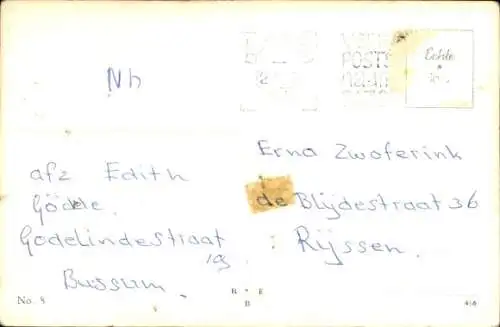 Nh
POSTS
Echte
afz Edith
Gödde.
Godelindestraat
19
Bussum.
Erna Zwoferink
de Blijdestraat 36
Rijssen.
No. 8
R • E
B